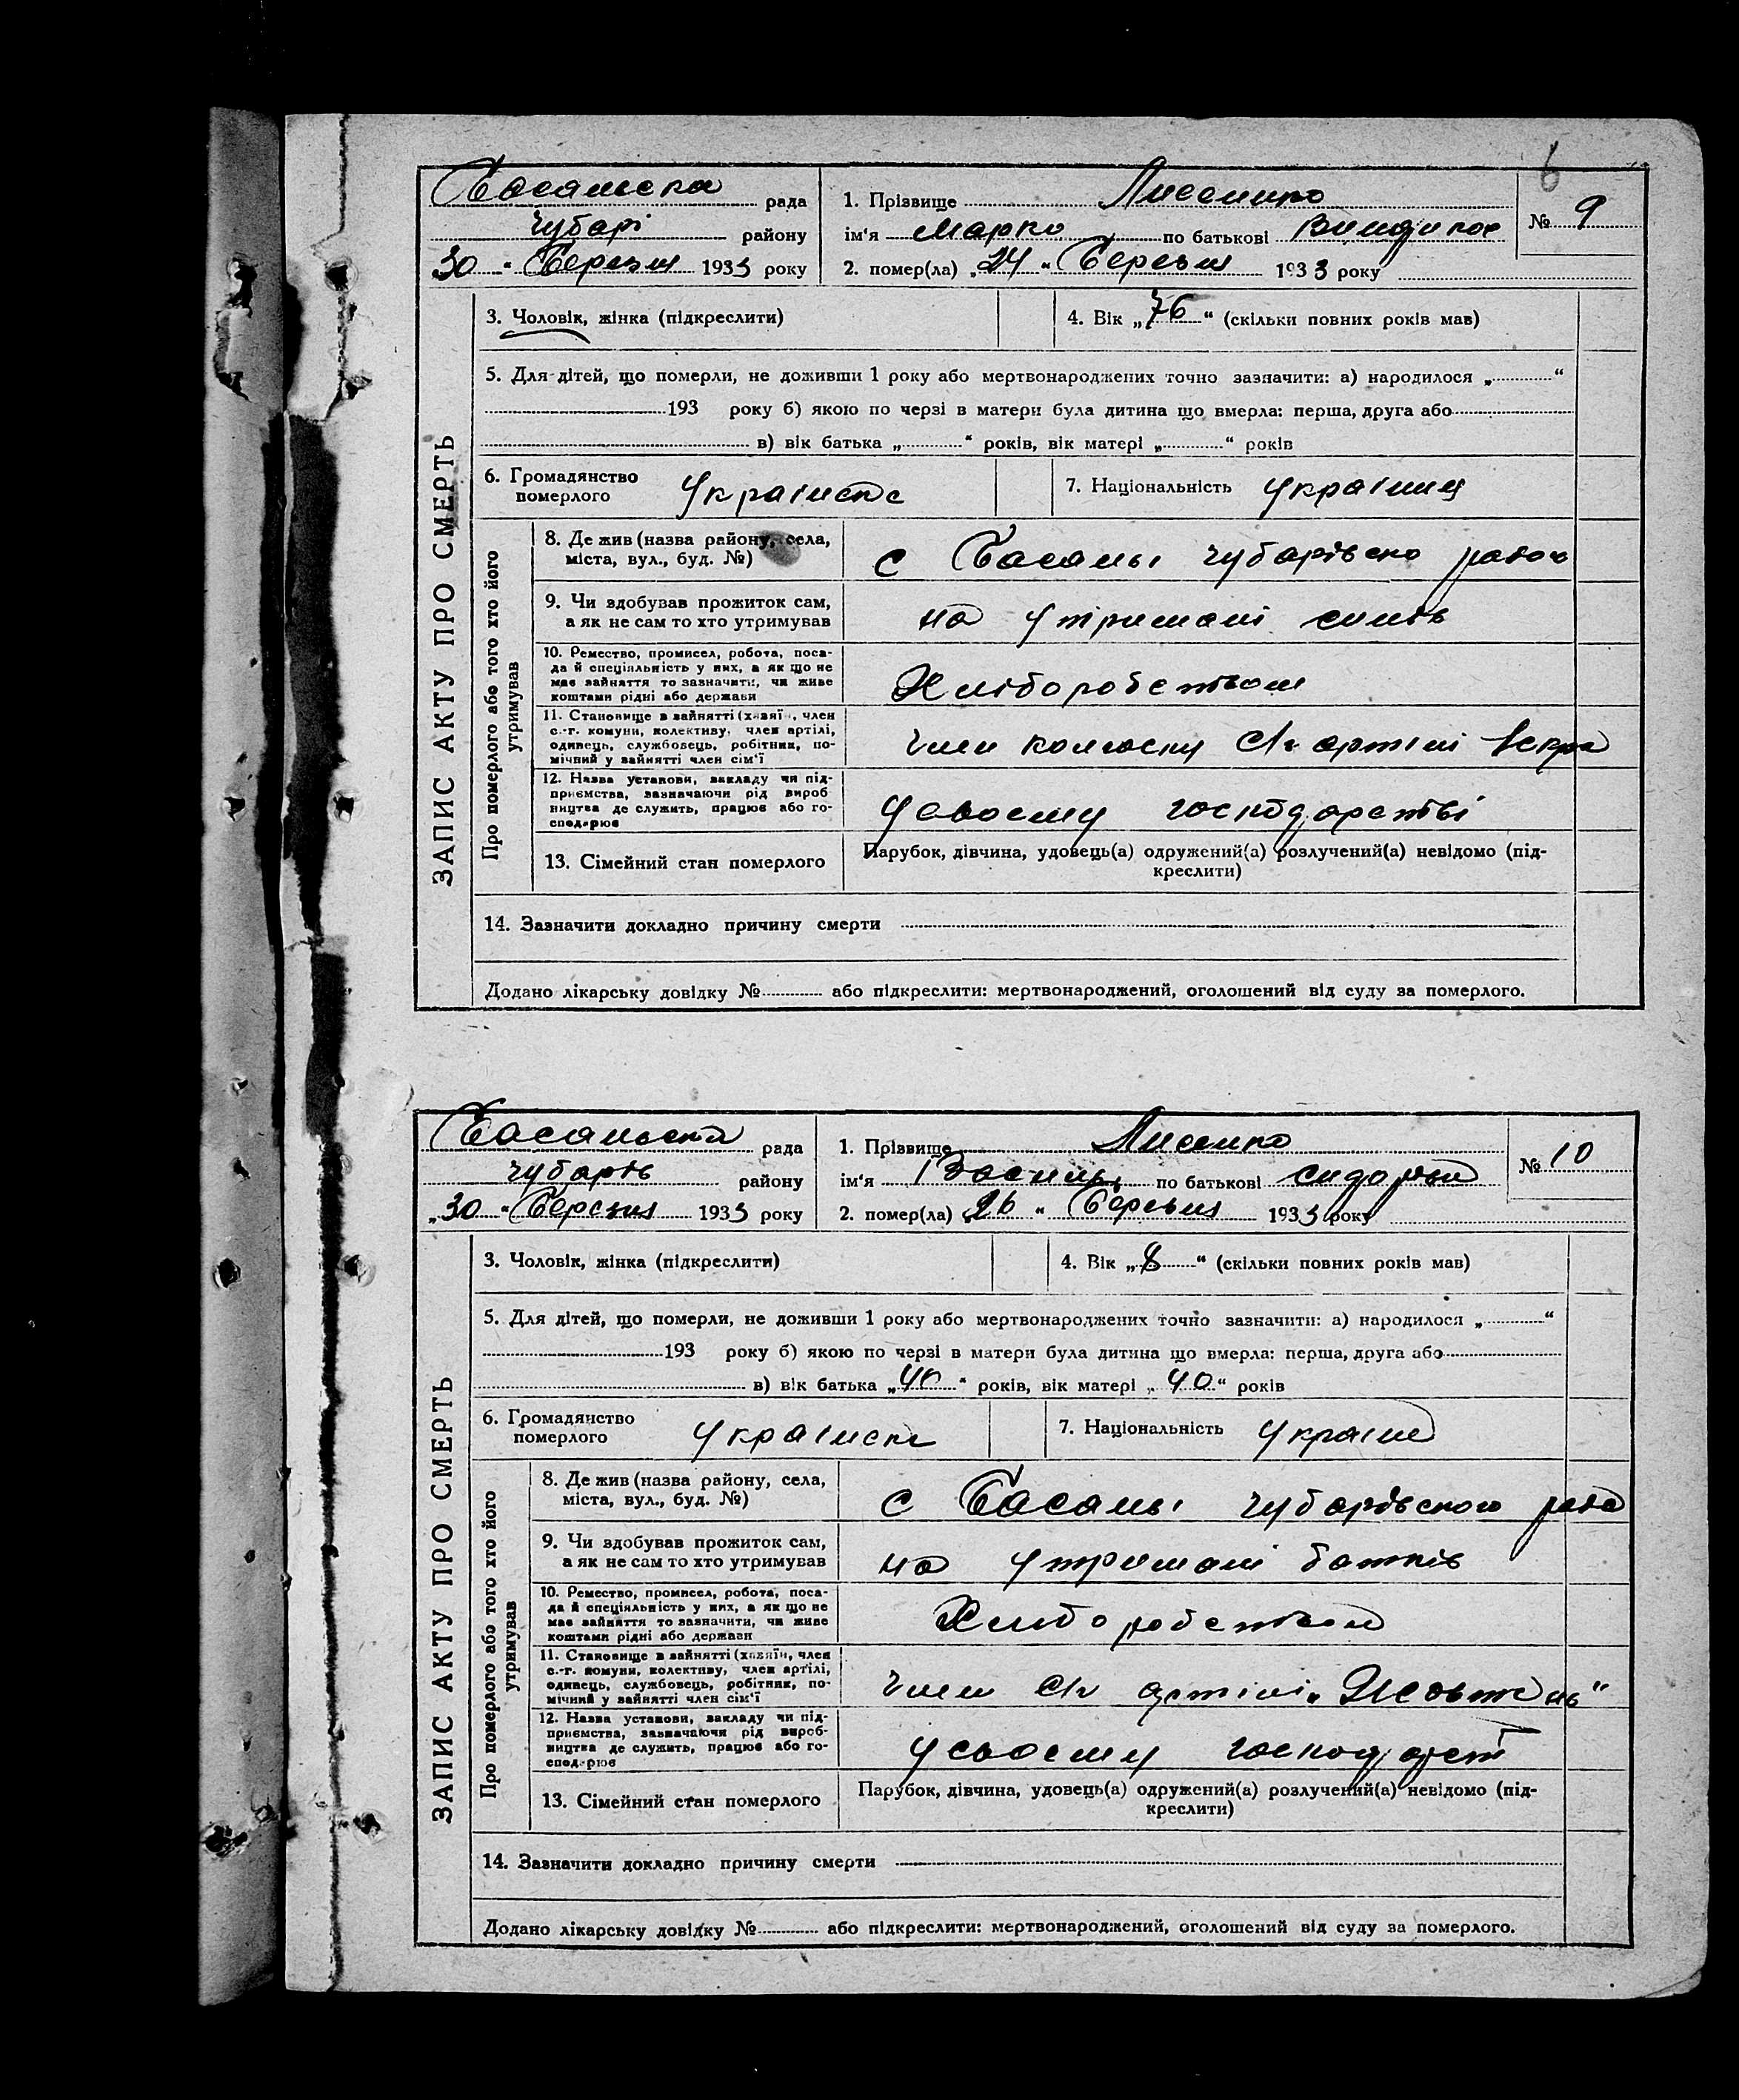 6
Басанська рада 1. Прізвище Лисенко № 9
Чубарі району ім'я Марко по батькові
30 " Березня 1933 року 2. помер(ла) „24 " Березня 1933 року
ЗАПИС АКТУ ПРО СМЕРТЬ
3. Чоловік, жінка (підкреслити) 4. Вік „76" (скільки повних років мав)
5. Для дітей, що померли, не доживши 1 року або мертвонароджених точно зазначити: а) народилося „ "
193 року б) якою по черзі в матери була дитина що вмерла: перша, друга або
в) вік батька „ " років, вік матері „ " років
6. Громадянство
померлого
7. Національність
Про померлого або того хто його
утримував
8. Де жив (назва району, села,
міста, вул., буд. №)
с Басань
9. Чи здобував прожиток сам,
а як не сам то хто утримував
на утримані синів
10. Ремество, промисел, робота, поса-
да й спеціяльність у них, а як що не
має зайняття то зазначити, чи живе
коштами рідні або держави
Хліборобством
11. Становище в зайнятті (хазяїн, член
с.-г. комуни, колективу, член артілі,
одинець, службовець, робітник, по-
мічний у зайнятті член сім'ї
член колгоспу с/г артілі Іскра
12. Назва установи, закладу чи під-
приємства, зазначаючи рід вироб
ництва де служить, працює або го-
сподарює
у своєму господарстві
13. Сімейний стан померлого
Парубок, дівчина, удовець(а) одружений(а) розлучений(а) невідомо (під-
креслити)
14. Зазначити докладно причину смерти
Додано лікарську довідку № або підкреслити: мертвонароджений, оголошений від суду за померлого.
Басанська рада 1. Прізвище Лисенко № 10
Чубарів району ім'я Василь по батькові
„30 " Березня 1933 року 2. помер(ла) „26 " Березня 1933 року
ЗАПИС АКТУ ПРО СМЕРТЬ
3. Чоловік, жінка (підкреслити) 4. Вік „8" (скільки повних років мав)
5. Для дітей, що померли, не доживши 1 року або мертвонароджених точно зазначити: а) народилося „ "
193 року б) якою по черзі в матери була дитина що вмерла: перша, друга або
в) вік батька „40" років, вік матері „40" років
6. Громадянство
померлого
7. Національність
Про померлого або того хто його
утримував
8. Де жив (назва району, села,
міста, вул., буд. №)
с Басань Чубарівського
9. Чи здобував прожиток сам,
а як не сам то хто утримував
на утримані батьків
10. Ремество, промисел, робота, поса-
да й спеціяльність у них, а як що не
має зайняття то зазначити, чи живе
коштами рідні або держави
Хліборобством
11. Становище в зайнятті (хазяїн, член
с.-г. комуни, колективу, член артілі,
одинець, службовець, робітник, по-
мічний у зайнятті член сім'ї
член с/г артілі „Жовтень"
12. Назва установи, закладу чи під-
приємства, зазначаючи рід вироб-
ництва де служить, працює або го-
сподарює
у своєму господарст
13. Сімейний стан померлого
Парубок, дівчина, удовець(а) одружений(а) розлучений(а) невідомо (під-
креслити)
14. Зазначити докладно причину смерти
Додано лікарську довідку № або підкреслити: мертвонароджений, оголошений від суду за померлого.